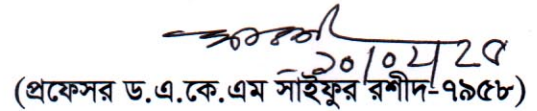 ২০/০২/২৫
(প্রফেসর ড.এ.কে.এম সাইফুর রশীদ-৭৯৫৮)